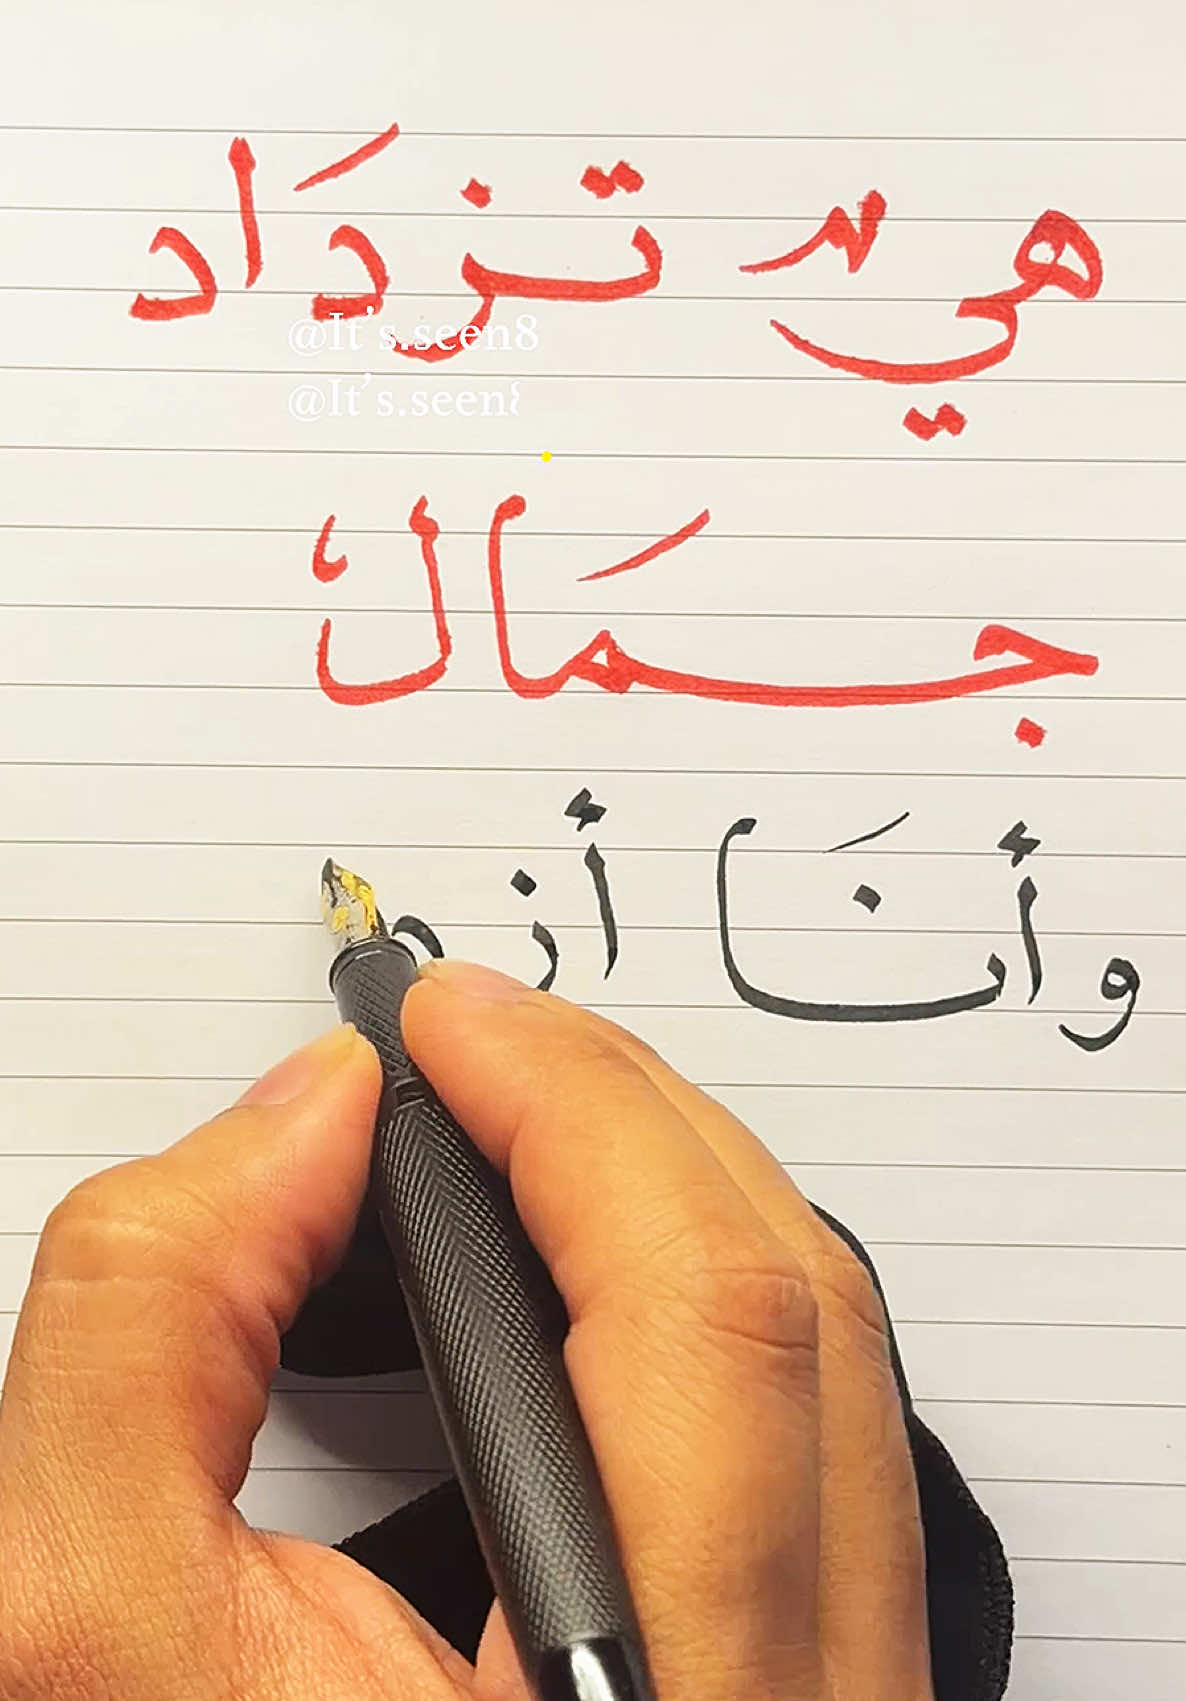 هي تزدَاد
@It's.seen8
@It's.seen8
جمَال
وأنَا أز